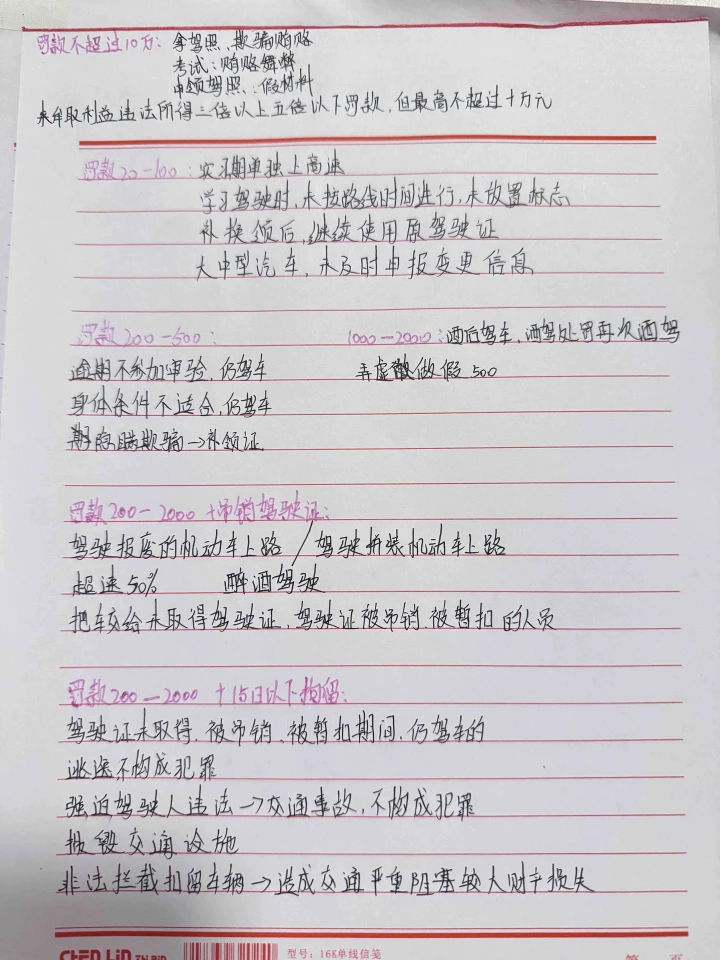 罚款不超过10万: 拿驾照、欺骗贿赂
考试:贿赂舞弊
申领驾照:假材料
未牟取利益违法所得三倍以上五倍以下罚款,但最高不超过十万元
罚款20-100:实习期单独上高速
学习驾驶时,未按路线时间进行,未放置标志
补换领后,继续使用原驾驶证
大中型汽车,未及时申报变更信息
罚款200-500:
1000-2000:酒后驾车,酒驾处罚再次酒驾
逾期不参加审验,仍驾车
弄虚做假 500
身体条件不适合,仍驾车
隐瞒欺骗→补领证
罚款200-2000+吊销驾驶证:
驾驶报废的机动车上路 / 驾驶拼装机动车上路
超速50% 醉酒驾驶
把车交给未取得驾驶证、驾驶证被吊销、被暂扣的人员
罚款200-2000 +15日以下拘留:
驾驶证未取得、被吊销、被暂扣期间,仍驾车的
逃逸不构成犯罪
强迫驾驶人违法→交通事故,不构成犯罪
损毁交通设施
非法拦截扣留车辆→造成交通严重阻塞较大财产损失
型号:16K单线信笺
第 页